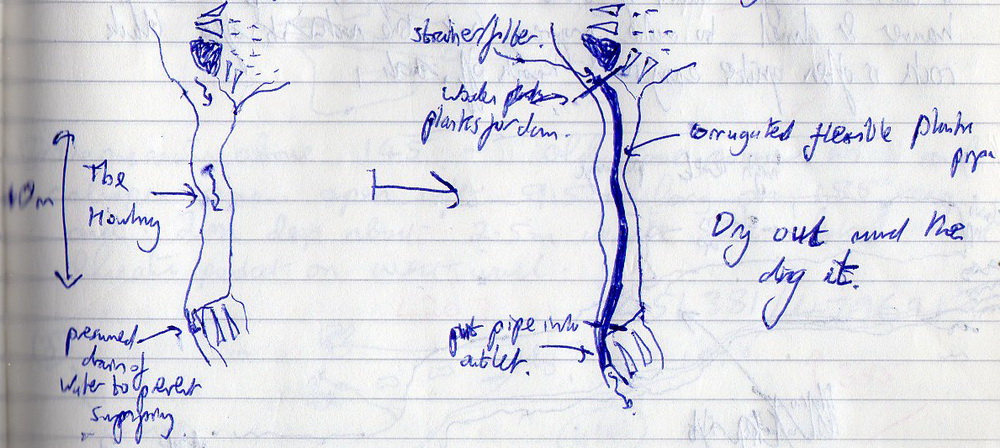 strainer/filter.
planks for dam.
corrugated flexible plastic
pipe
10m
The
Howling
Dry out mud then
dig it.
presumed
drain of
water to prevent
sumping.
put pipe into
outlet.